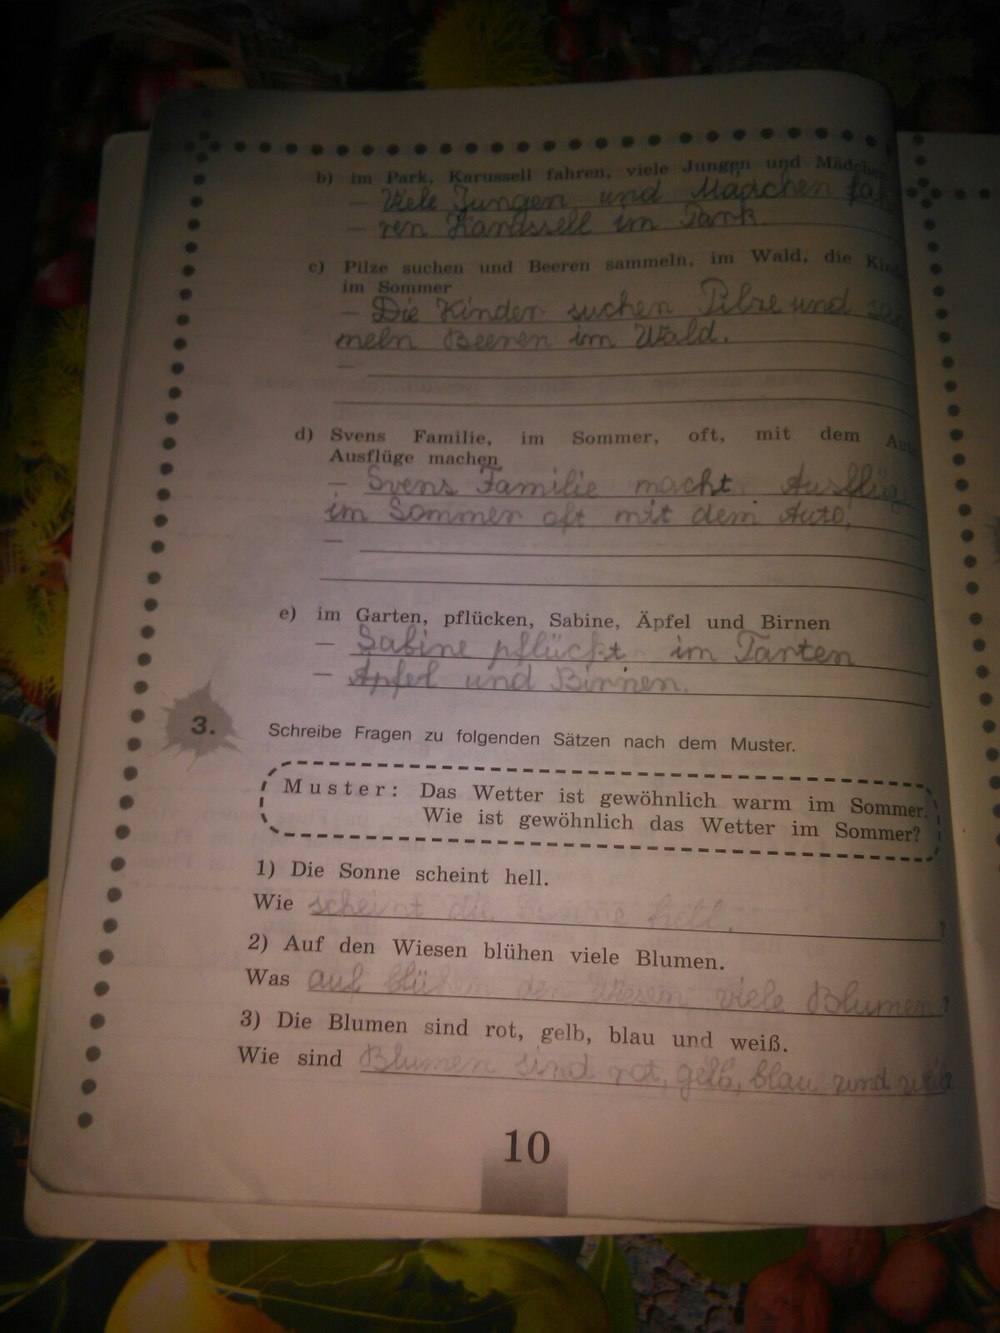 b) im Park, Karussell fahren, viele Jungen und Mädchen
– Viele Jungen und Mädchen fah
– ren Karussell im Park.
c) Pilze suchen und Beeren sammeln, im Wald, die Kin
im Sommer
– Die Kinder suchen Pilze und sa
meln Beeren im Wald.
–
d) Svens Familie, im Sommer, oft, mit dem Au
Ausflüge machen
– Svens Familie macht Ausflüg
im Sommer oft mit dem Auto.
–
e) im Garten, pflücken, Sabine, Äpfel und Birnen
– Sabine pflückt im Garten
– Äpfel und Birnen.
3. Schreibe Fragen zu folgenden Sätzen nach dem Muster.
Muster: Das Wetter ist gewöhnlich warm im Sommer.
Wie ist gewöhnlich das Wetter im Sommer?
1) Die Sonne scheint hell.
Wie scheint die Sonne hell. ?
2) Auf den Wiesen blühen viele Blumen.
Was auf blühen den Wiesen viele Blumen ?
3) Die Blumen sind rot, gelb, blau und weiß.
Wie sind Blumen sind rot, gelb, blau und weiß
10